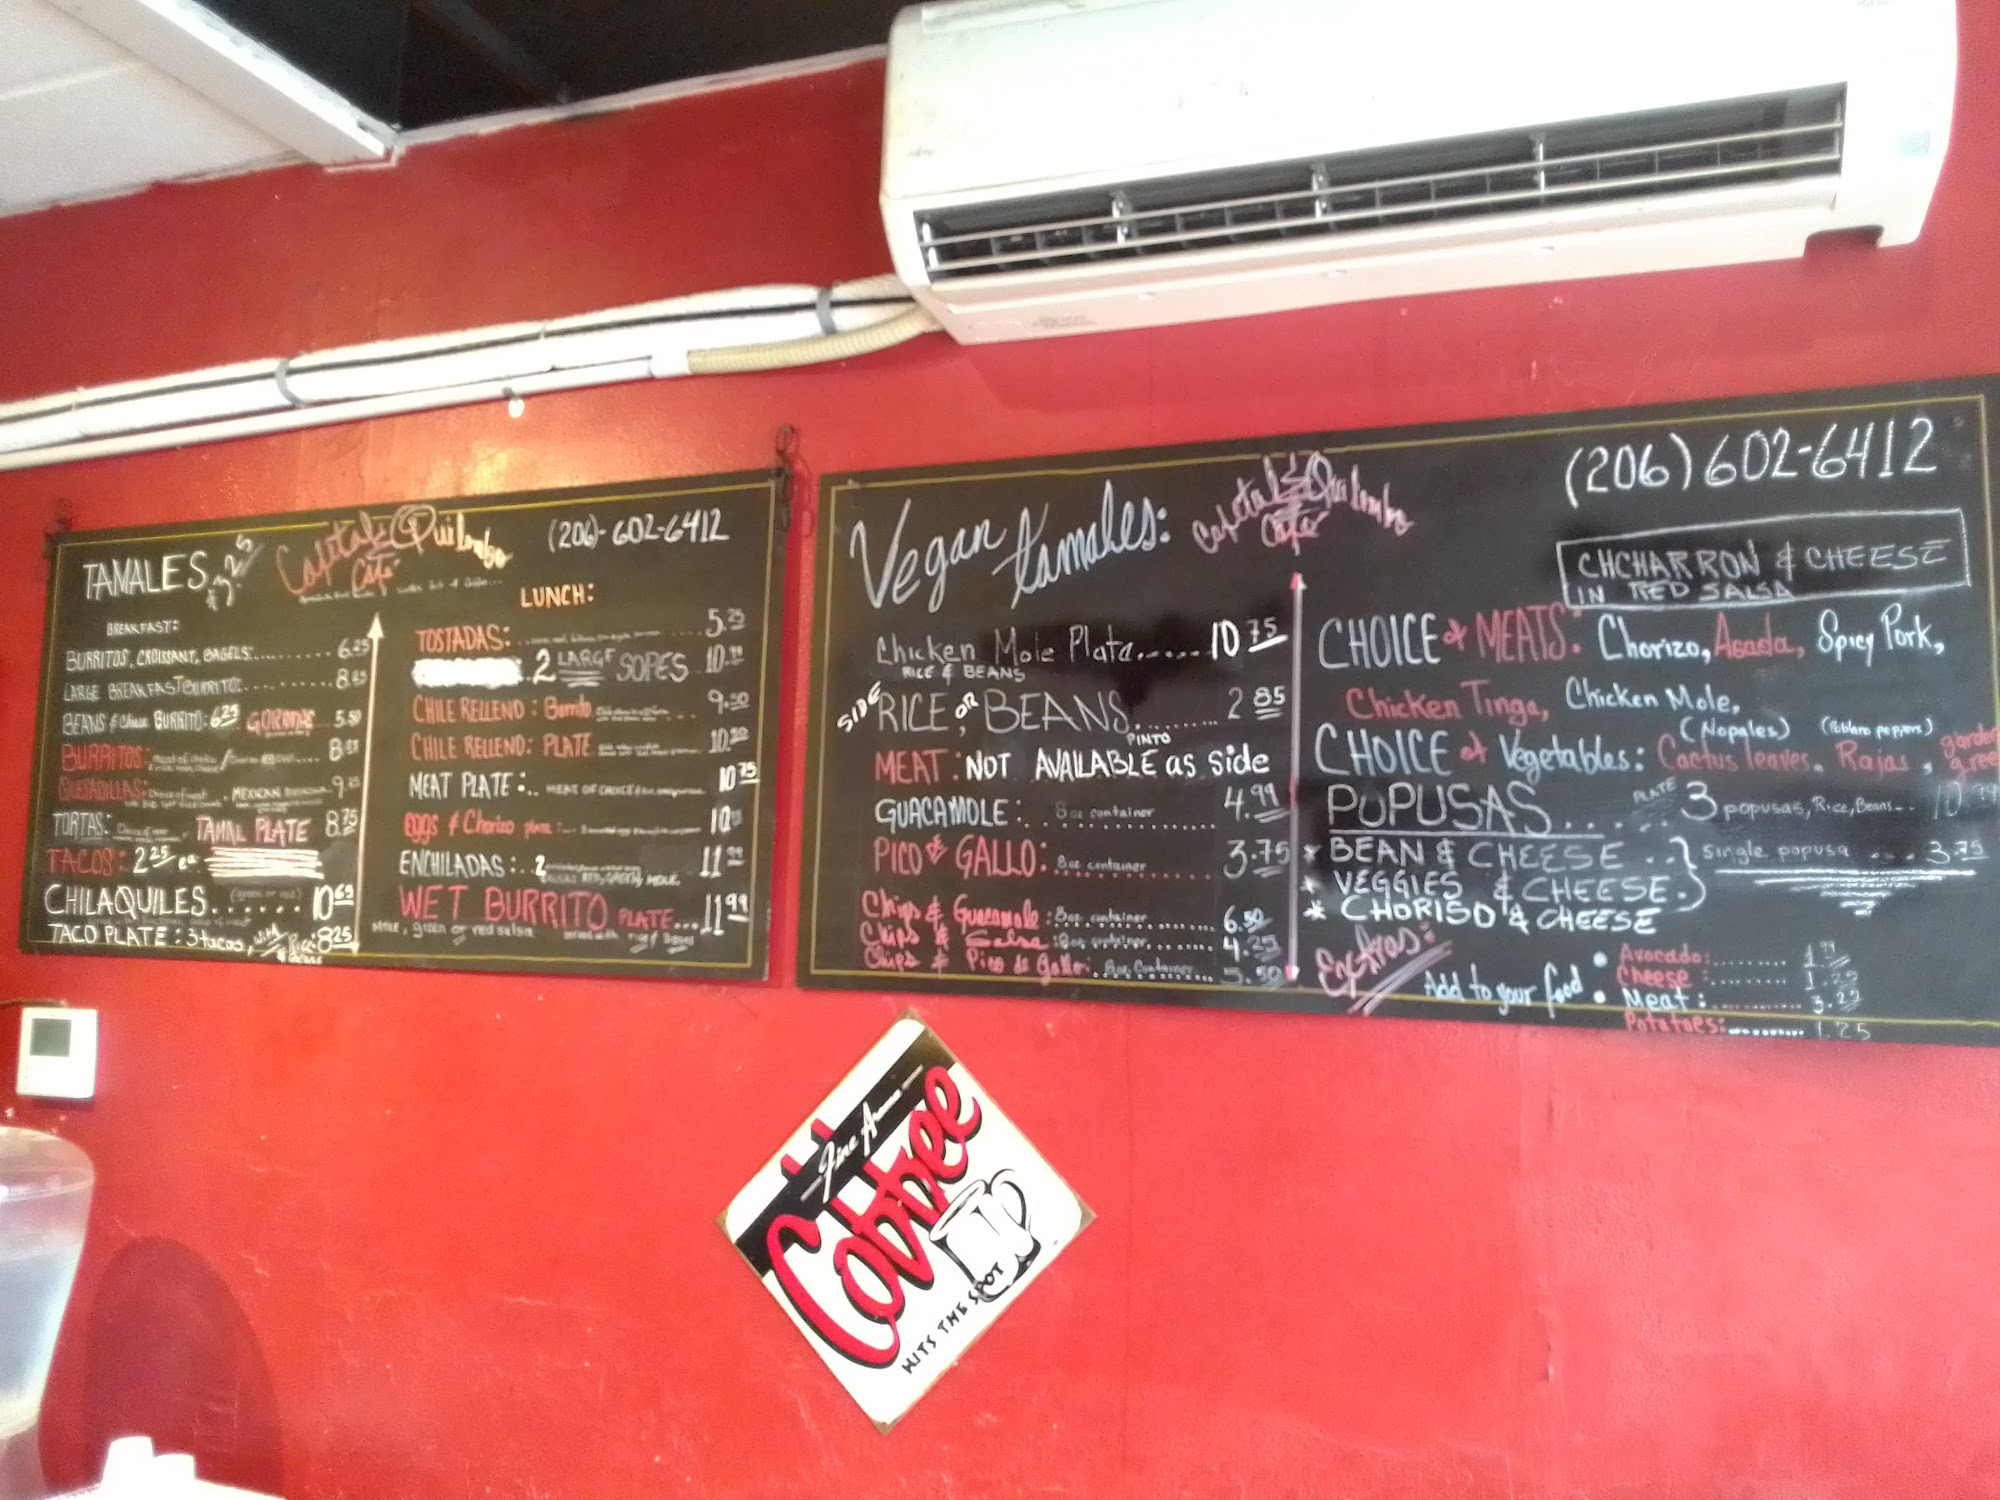 TAMALES $3.25
(206)-602-6412
BREAKFAST:
BURRITOS, CROISSANT, BAGELS: 6.25
LARGE BREAKFAST BURRITO:
BEANS & Cheese BURRITO: 6.25 GORDITAS 5.50
BURRITOS: meat of choice
QUESADILLAS: Choice of meat MEXICAN 9.25
TORTAS: TAMAL PLATE 8.75
TACOS: 2.25 ea
CHILAQUILES (green or red) ...... 10.65
TACO PLATE: 3 tacos, with Rice & Beans 8.25
LUNCH:
TOSTADAS: 5.25
2 LARGE SOPES 10.99
CHILE RELLENO: Burrito 9.50
CHILE RELLENO: PLATE
MEAT PLATE:.. MEAT OF CHOICE 10.75
eggs & Chorizo plate:
ENCHILADAS:.. 2 MOLE. 11.99
WET BURRITO PLATE...11.99
MOLE, green or red salsa served with rice & Beans
Vegan tamales:
Capital & Quilombo
Cafe
(206) 602-6412
CHCHARRON & CHEESE
IN RED SALSA
Chicken Mole Plate....... 10 75
RICE & BEANS
SIDE RICE, OR BEANS. ....... 2 85
PINTO
MEAT: NOT AVAILABLE as side
GUACAMOLE: 8 oz container 4.99
PICO de GALLO: 8oz container 3.75
Chips & Guacamole: 8oz container 6.50
Chips & Salsa: 8oz container 4.25
Chips & Pico de Gallo: 8oz. Container 5.50
CHOICE of MEATS: Chorizo, Asada, Spicy Pork,
Chicken Tinga, Chicken Mole,
(Nopales) (Poblano peppers)
CHOICE of Vegetables: Cactus leaves, Rajas,
POPUSAS ..... PLATE 3 popusas, Rice, Beans... 10.99
* BEAN & CHEESE .. single popusa .... 3.75
* VEGGIES & CHEESE.
* CHORISO & CHEESE
Extras:
Add to your food
• Avocado:........ 1.99
Cheese :......... 1.25
• Meat :............ 3.25
Potatoes:.......... 1.25
Fine Aroma
Coffee
HITS THE SPOT